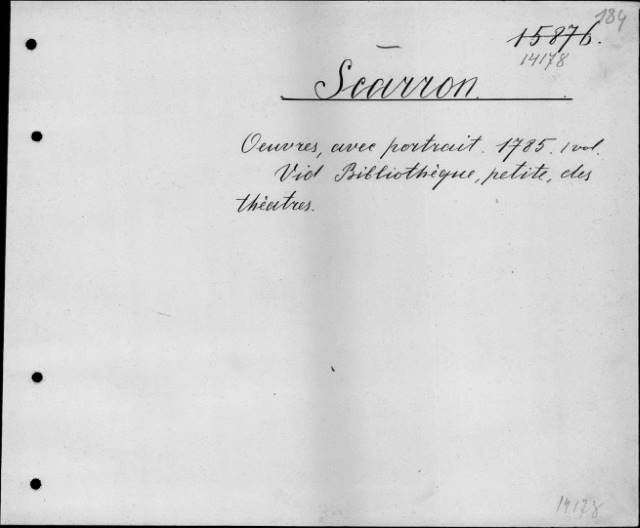 184
15876.
14178
Scarron.
Oeuvres, avec portrait. 1785. 1 vol.
Vid Bibliothèque, petite, des
théatres.
14178